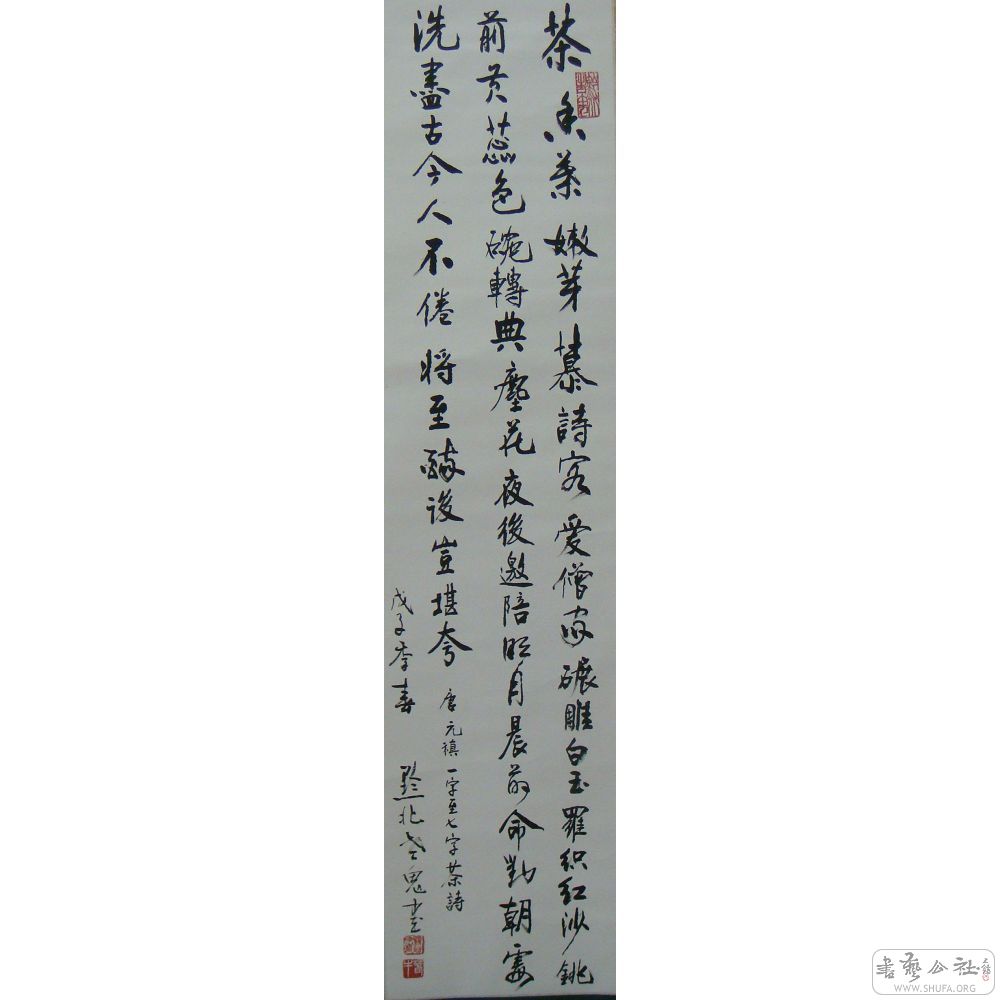 茶香葉嫩芽慕詩客愛僧家碾雕白玉羅织红沙銚
前黄蕊色碗轉典塵花夜後邀陪明月晨前命對朝霞
洗盡古今人不倦将至醉後豈堪夸
唐元稹一字至七字茶詩
戊子季春
黔北老鬼书
書藝公社
WWW.SHUFA.ORG